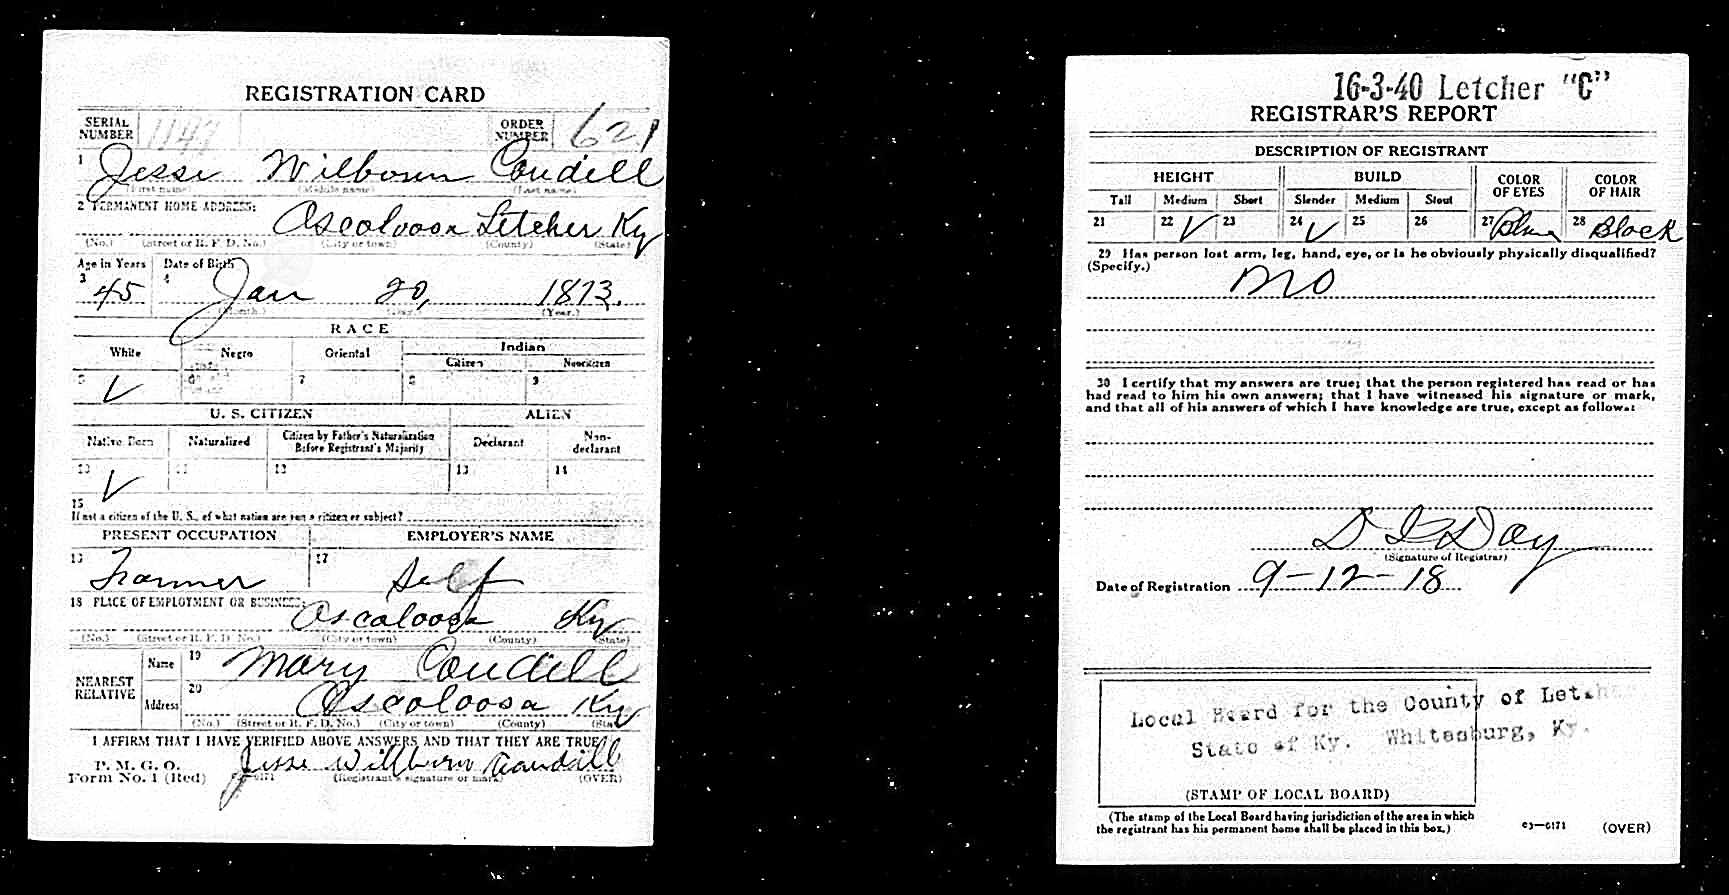 REGISTRATION CARD
SERIAL NUMBER 1147 ORDER NUMBER 621
1 Jesse Wilbourn Caudill
(First name) (Middle name) (Last name)
2 PERMANENT HOME ADDRESS:
Oscaloosa Letcher Ky
(No.) (Street or R. F. D. No.) (City or town) (County) (State)
Age in Years Date of Birth
3 45 4 Jan 20, 1873.
(Month.) (Day.) (Year.)
RACE
White Negro Oriental Indian
Citizen Noncitizen
5 V 6 7 8 9
U. S. CITIZEN ALIEN
Native Born Naturalized Citizen by Father's Naturalization Before Registrant's Majority Declarant Non-declarant
10 V 11 12 13 14
15
If not a citizen of the U. S., of what nation are you a citizen or subject?
PRESENT OCCUPATION EMPLOYER'S NAME
16 Farmer 17 Self
18 PLACE OF EMPLOYMENT OR BUSINESS:
Oscaloosa Ky
(No.) (Street or R. F. D. No.) (City or town) (County) (State)
NEAREST RELATIVE Name 19 Mary Caudill
Address 20 Oscaloosa Ky
(No.) (Street or R. F. D. No.) (City or town) (County) (State)
I AFFIRM THAT I HAVE VERIFIED ABOVE ANSWERS AND THAT THEY ARE TRUE
P. M. G. O.
Form No. 1 (Red) Jesse Wilburn Caudill
(Registrant's signature or mark) (OVER)
16-3-40 Letcher "C"
REGISTRAR'S REPORT
DESCRIPTION OF REGISTRANT
HEIGHT BUILD COLOR OF EYES COLOR OF HAIR
Tall Medium Short Slender Medium Stout
21 22 V 23 24 V 25 26 27 Blue 28 Black
29 Has person lost arm, leg, hand, eye, or is he obviously physically disqualified?
(Specify.)
no
30 I certify that my answers are true; that the person registered has read or has
had read to him his own answers; that I have witnessed his signature or mark,
and that all of his answers of which I have knowledge are true, except as follows:
D I Day
(Signature of Registrar)
Date of Registration 9-12-18
Local Board for the County of Letcher
State of Ky. Whitesburg, Ky.
(STAMP OF LOCAL BOARD)
(The stamp of the Local Board having jurisdiction of the area in which
the registrant has his permanent home shall be placed in this box.)
03-6171 (OVER)